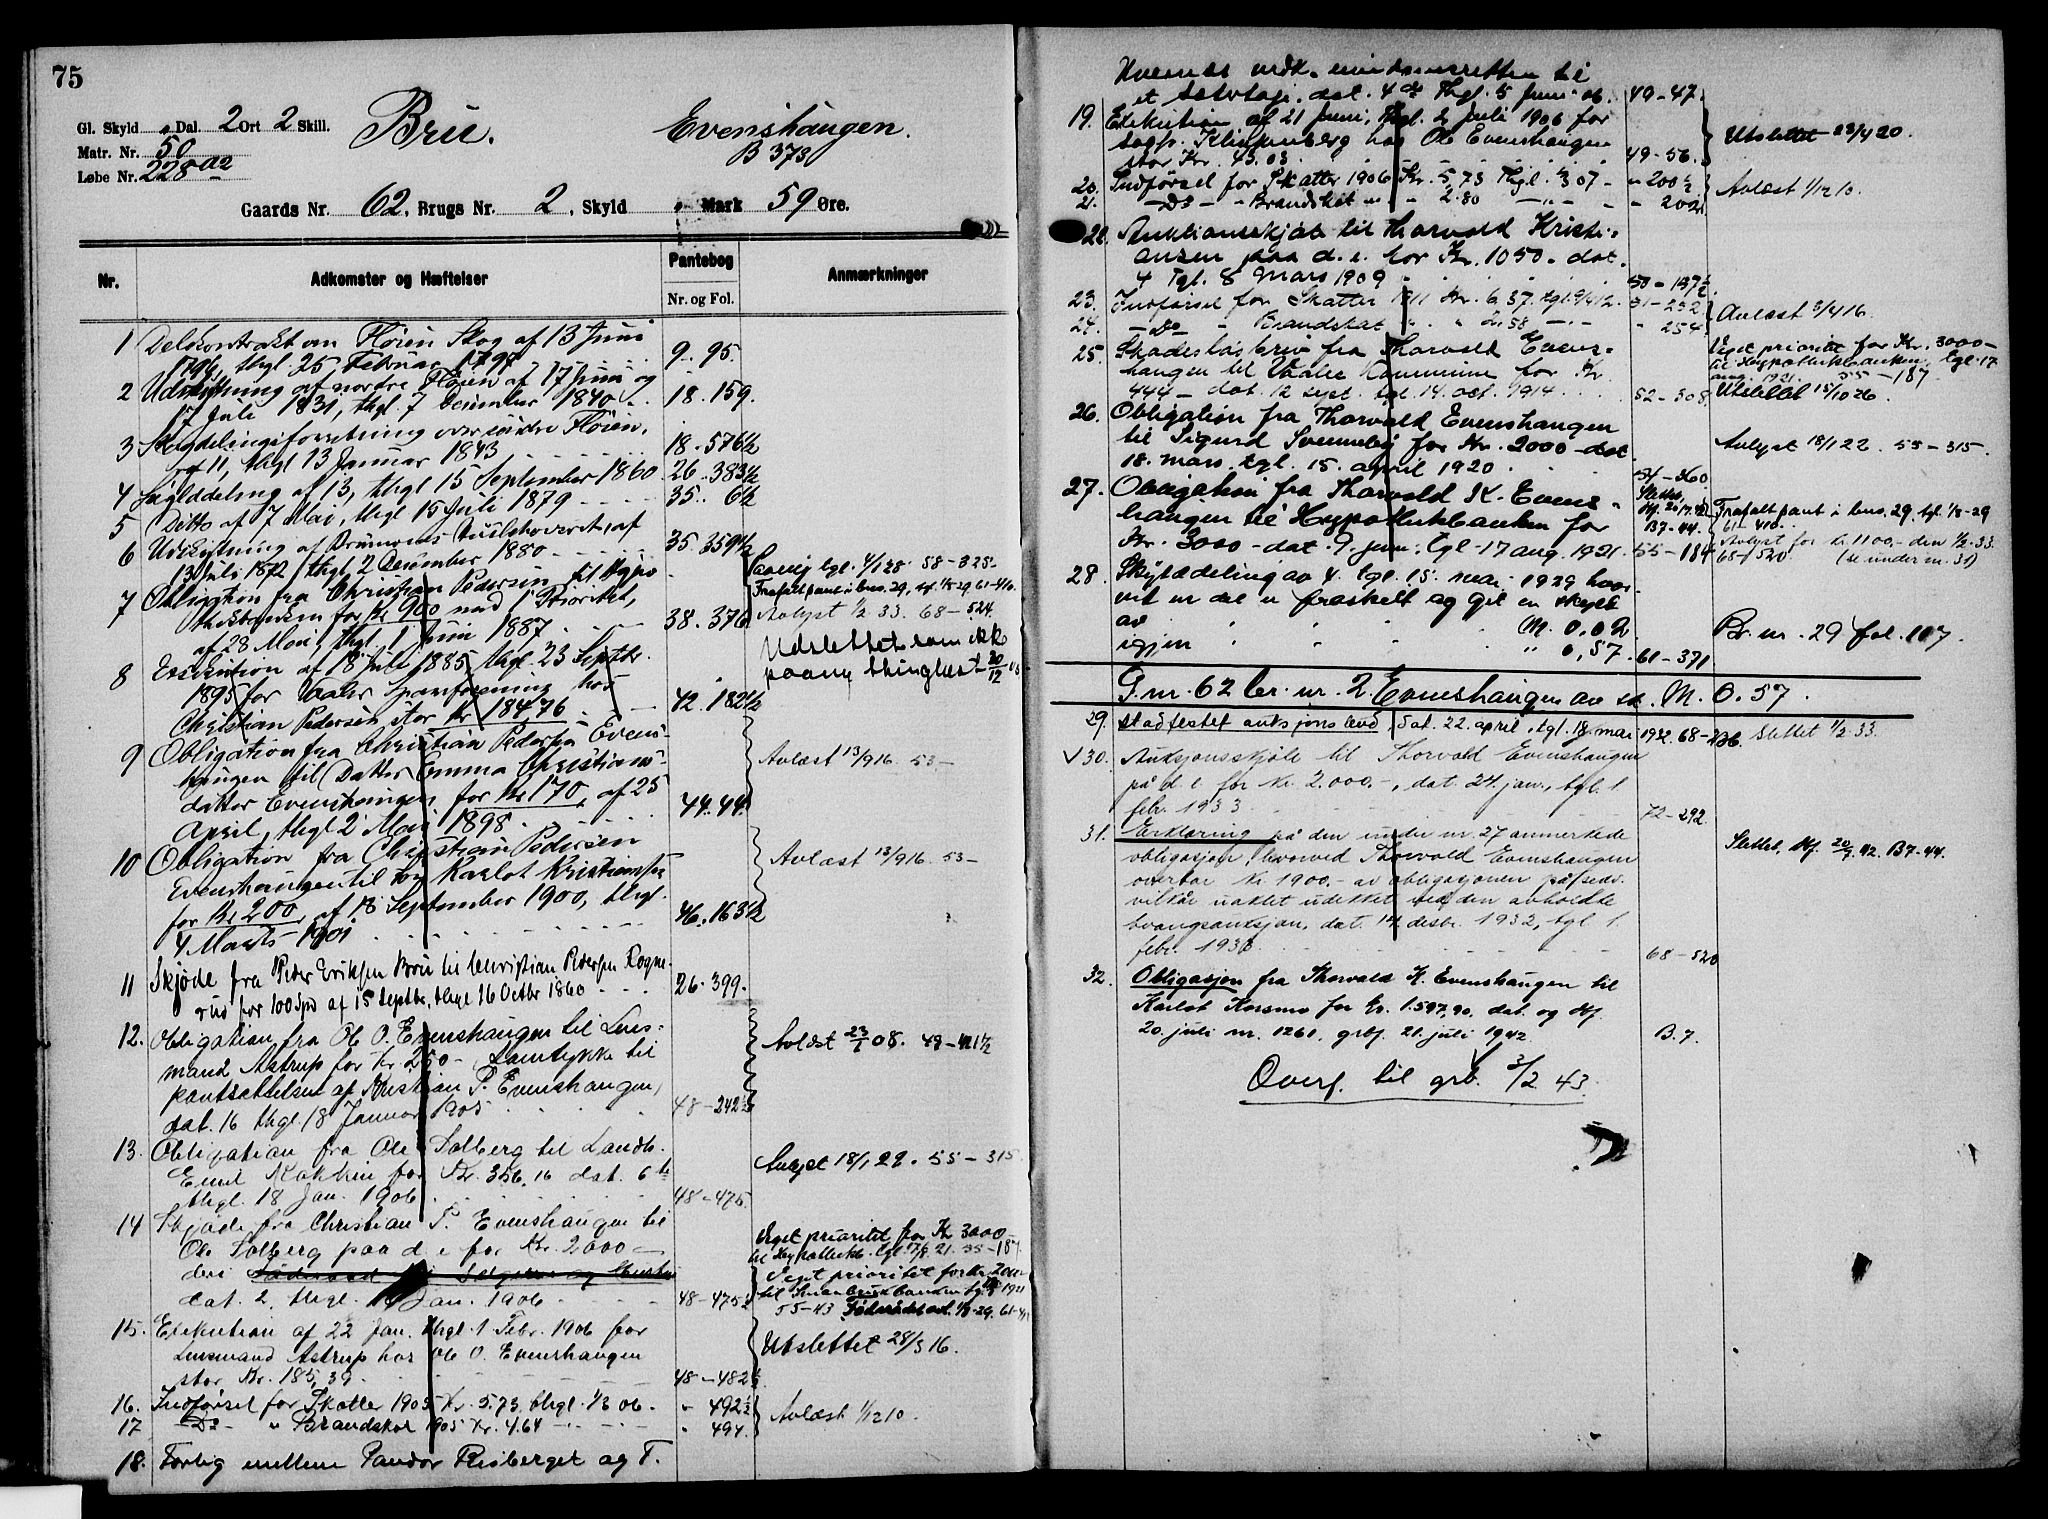 75
Gl. Skyld " Dal. 2 Ort 2 Skill.
Matr. Nr. 50
Løbe Nr. 228 a2
Bru. Evenshaugen.
B 373
Gaards Nr. 62, Brugs Nr. 2, Skyld " Mark 59 Øre.
Nr. Adkomster og Hæftelser Pantebog Anmærkninger
Nr. og Fol.
1 Delekontrakt om Fløien Skog af 13 Juni
1796, thgl. 25 Februar 1797 9. 95.
2 Udskiftning af nordre Fløien af 17 Juni og
17 Juli 1831, thgl. 7 December 1840 18. 159.
3 Skogdelingsforretning over søndre Fløien,
af 11, thgl 13 Januar 1843 18. 576½
4 Skylddeling af 13, thgl 15 September 1860 26. 383½
5 Ditto af 7 Mai, thgl 15 Juli 1879 35. 6½
6 Udskiftning af af
13 Juli 1872 thgl 2 December 1880 35. 359½
7 Obligation fra Christian Pedersen til Hypo
thekbanken for Kr 900 med 1 Prioritet,
af 28 Mai, thgl. 1 Juni 1887 38. 376
tgl. 4/1 28. 58 - 325.
Frafalt pant i bnr. 29, tgl. 1/8-29 61-410.
Avlyst 1/2 33. 68 - 524.
8 Exekution af 18 Juli 1885, thgl 23 Septbr.
1895 for Vaaler Spareforening hos
Christian Pedersen stor Kr 184,76 42. 182½
Udslettet som ikke
paany thinglæst 20/12 05
9 Obligation fra Christian Pedersen Evens-
haugen til Datter Emma Christians-
datter Evenshaugen, for Kr 170, af 25
April, thgl 2 Mai 1898 44. 44.
Avlæst 13/9 16. 53 -
10 Obligation fra Christian Pedersen
Evenshaugen til Karlot Kristiansen
for Kr 200, af 18 September 1900, thgl.
4 Marts 1901 46. 163½
Avlæst 13/9 16. 53 -
11 Skjøde fra Peder Eriksen Bru til Christian Pedersen Rogne-
rud for 100 Spd af 15 Septbr, thgl 16 Octbr 1860 26. 399.
12. Obligation fra Ole O. Evenshaugen til Lens-
mand Astrup for Kr 250 - Samtykke til
pantsættelsen af Kristian P. Evenshaugen,
dat. 16 thgl. 18 Januar 1905 48 - 242½
Avlæst 23/1 08. 49 - 421½
13. Obligation fra Ole Solberg til Landh.
Emil for Kr. 356,16 dat. 6te
thgl. 18 Jan. 1906 48 - 475.
Avlyst 18/1 22. 55 - 315
14 Skjøde fra Christian P. Evenshaugen til
Ole Solberg paa d. e for Kr. 2000 -
den Føderaad til Sælgeren og Hustru
dat. 2, thgl. 18 Jan. 1906 48 - 475½
Veget prioritet for Kr 3000 -
til Hypothekb. tgl 17/8. 21. 55 - 187.
Veget prioritet for Kr. 2000
til Smaabrukbanken tgl. 1921
55-43 Føderådet avl. 1/8-29. 61-411
15. Exekution af 22 Jan. thgl. 1 Febr. 1906 for
Lensmand Astrup hos Ole O. Evenshaugen
stor Kr. 185,39 48 - 482½
Utslettet 28/3 16.
16. Indførsel for Skatter 1905 Kr. 5.73, thgl. 1/3 06. " 492½
17 - Do - " Brandskat 1905 Kr. 4.64 " 494.
Avlæst 1/12 10.
18. Forlig mellem Pandor Risberget og T.
Hvernes vedk. mindesretten til
et , dat. 4de thgl. 5 Juni 06. 49-47.
19. Exekution af 21 Juni, thgl. 2 Juli 1906 for
sagf. Klinkenberg hos Ole Evenshaugen
stor Kr. 43.03 49-56.
Utslettet 23/4 20.
20. Indførsel for Skatter 1906 Kr. 5,73 thgl. 1/3 07 - " 200½
21. - Do - " Brandskat " " 2.80 " 202
Avlæst 1/12 10.
22. Auktionsskjøde til Thorvald Kristi-
ansen paa d. e. for Kr. 1050. - dat.
4 tgl. 8 Mars 1909 50 - 137½
23. Indførsel for Skatter 1911 Kr. 6.37. tgl. 9/4 12. 51 - 252
24. - Do - " Brandskat " " 2.58 " 254
Avlæst 3/4 16.
25. Skadesløsbrev fra Thorvald Evens-
haugen til Vaaler Kommune for Kr
444 - dat. 12 sept. tgl. 14. oct. 1914 52 - 308.
Veget prioritet for Kr. 3000 -
til Hypothekbanken, tgl. 17
aug. 1921. 55 - 187.
Utslettet 15/10 26.
26. Obligation fra Thorvald Evenshaugen
til Sigurd Svenneby for Kr. 2000 - dat
18. mars. tgl. 15. april 1920 54 - 360
Avlyst 18/1 22. 55 - 315.
27. Obligation fra Thorvald K. Evens-
haugen til Hypothekbanken for
Kr. 3000 - dat. 9. juni, tgl. 17 aug. 1921. 55 - 184
Slettet, Hf. 20/7. 42 B7-44.
Frafalt pant i bnr. 29. tgl. 1/8-29
61 - 410.
Avlyst for kr 1100.- den 1/2-33.
68 - 520 (se under nr. 31)
28. Skylddeling av 4. tgl. 15. mai 1929 hvor-
ved en del er fraskilt og git en skyld
av M. 0,02
igjen " " " " " 0,57. 61 - 371
Br. nr. 29 fol. 107.
G. nr. 62 br. nr. 2. Evenshaugen av sk. M. 0.57.
29. Stadfestet auksjonsbud, dat. 22. april, tgl. 18 mai 1932. 68 - 226. Slettet 1/2 33.
V 30. Auksjonsskjøte til Thorvald Evenshaugen
på d. e for kr. 2.000.-, dat. 24. jan., tgl. 1
febr. 1933 72 - 292.
31. Erklæring på den under nr. 27 anmerkede
obligasjon, hvorved Thorvald Evenshaugen
overtar Kr 1900.- av obligasjonen på sedv.
vilkår uaktet udekket ved den avholdte
tvangsauksjon, dat. 14 desbr. 1932, tgl 1.
febr. 1933 68 - 520
Slettet, Hf. 20/7. 42. B7-44.
32. Obligasjon fra Thorvald K. Evenshaugen til
Karlot Korsmo for kr. 1.597,90, dat. og Hf.
20. juli nr. 1261, grbf. 21. juli 1942. B.7.
Overf. til grb. 3/2 43.